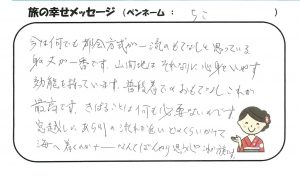 旅の幸せメッセージ (ペンネーム : ちこ )
今は何でも都会方式が一流のもてなしと思っている
のが一番です。山間地はそれなりに心身をいやす
効能を持っています。普段着でのおもてなしこれが
最高です。きばることは何も必要ないのです
窓越しに あられの流れを追い どれくらいかけて
海へ着くのか――なんてぼんやり思う 心の旅は。